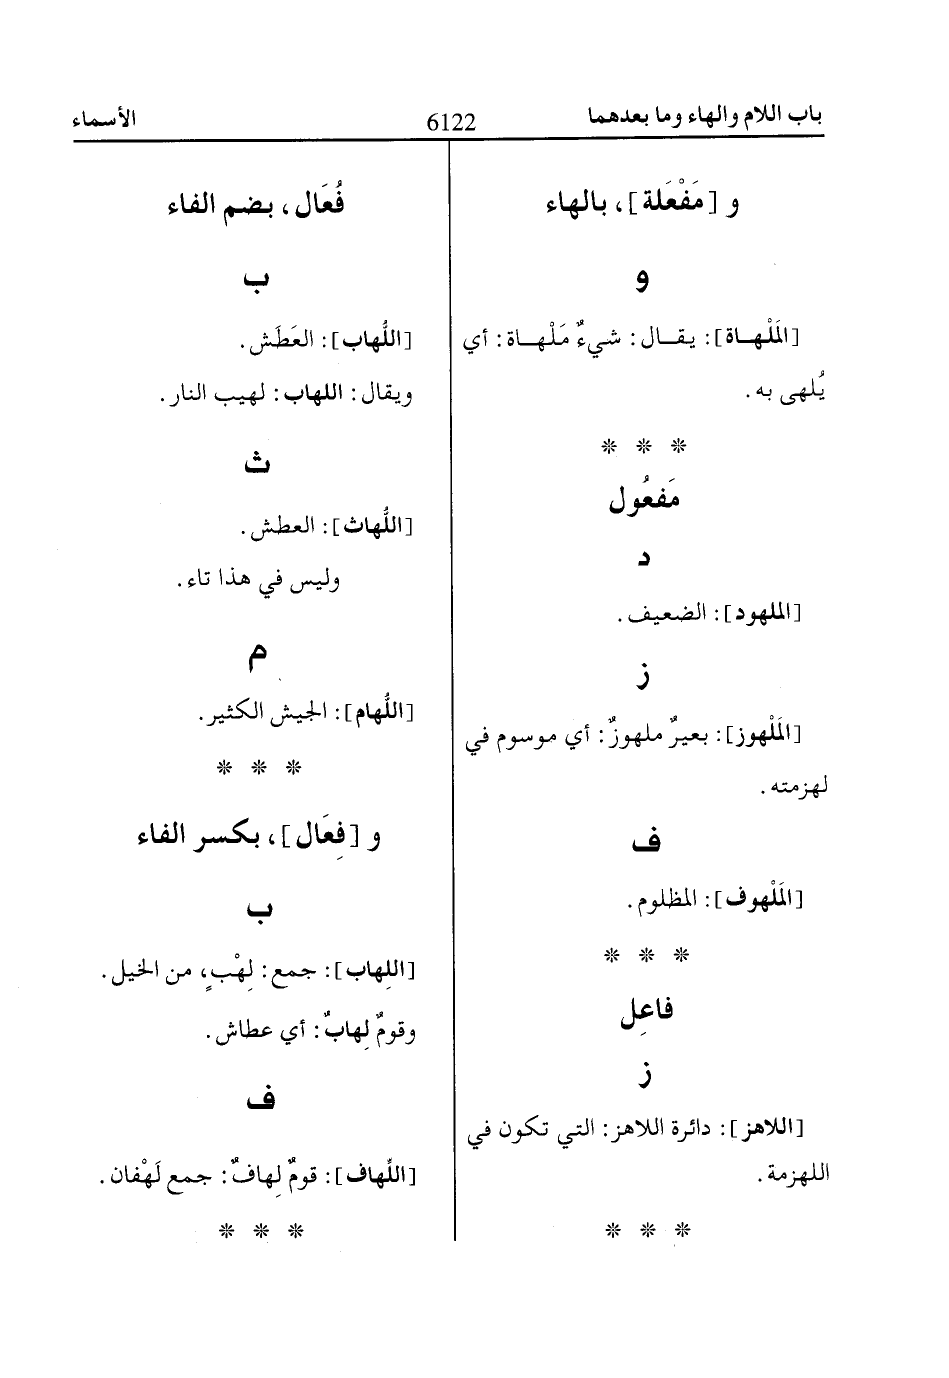 باب اللام والهاء وما بعدهما
6122
الأسماء
و [مَفْعَلة]، بالهاء
و
[المَلْهـاة]: يقـال: شيءٌ مَلْهـاة: أي
يُلهى به.
* * *
مَفعُول
د
[الملهود]: الضعيف.
ز
[المَلْهوز]: بعيرٌ ملهوزٌ: أي موسوم في
لهزمته.
ف
[المَلْهوف]: المظلوم.
* * *
فاعِل
ز
[اللاهز]: دائرة اللاهز: التي تكون في
اللهزمة.
* * *
فُعَال، بضم الفاء
ب
[اللُّهاب]: العَطَش.
ويقال: اللهاب: لهيب النار.
ث
[اللُّهاث]: العطش.
وليس في هذا تاء.
م
[اللُّهام]: الجيش الكثير.
* * *
و [فِعَال]، بكسر الفاء
ب
[اللِهاب]: جمع: لِهْبٍ، من الخيل.
وقومٌ لِهابٌ: أي عطاش.
ف
[اللِّهاف]: قومٌ لِهافٌ: جمع لَهْفان.
* * *